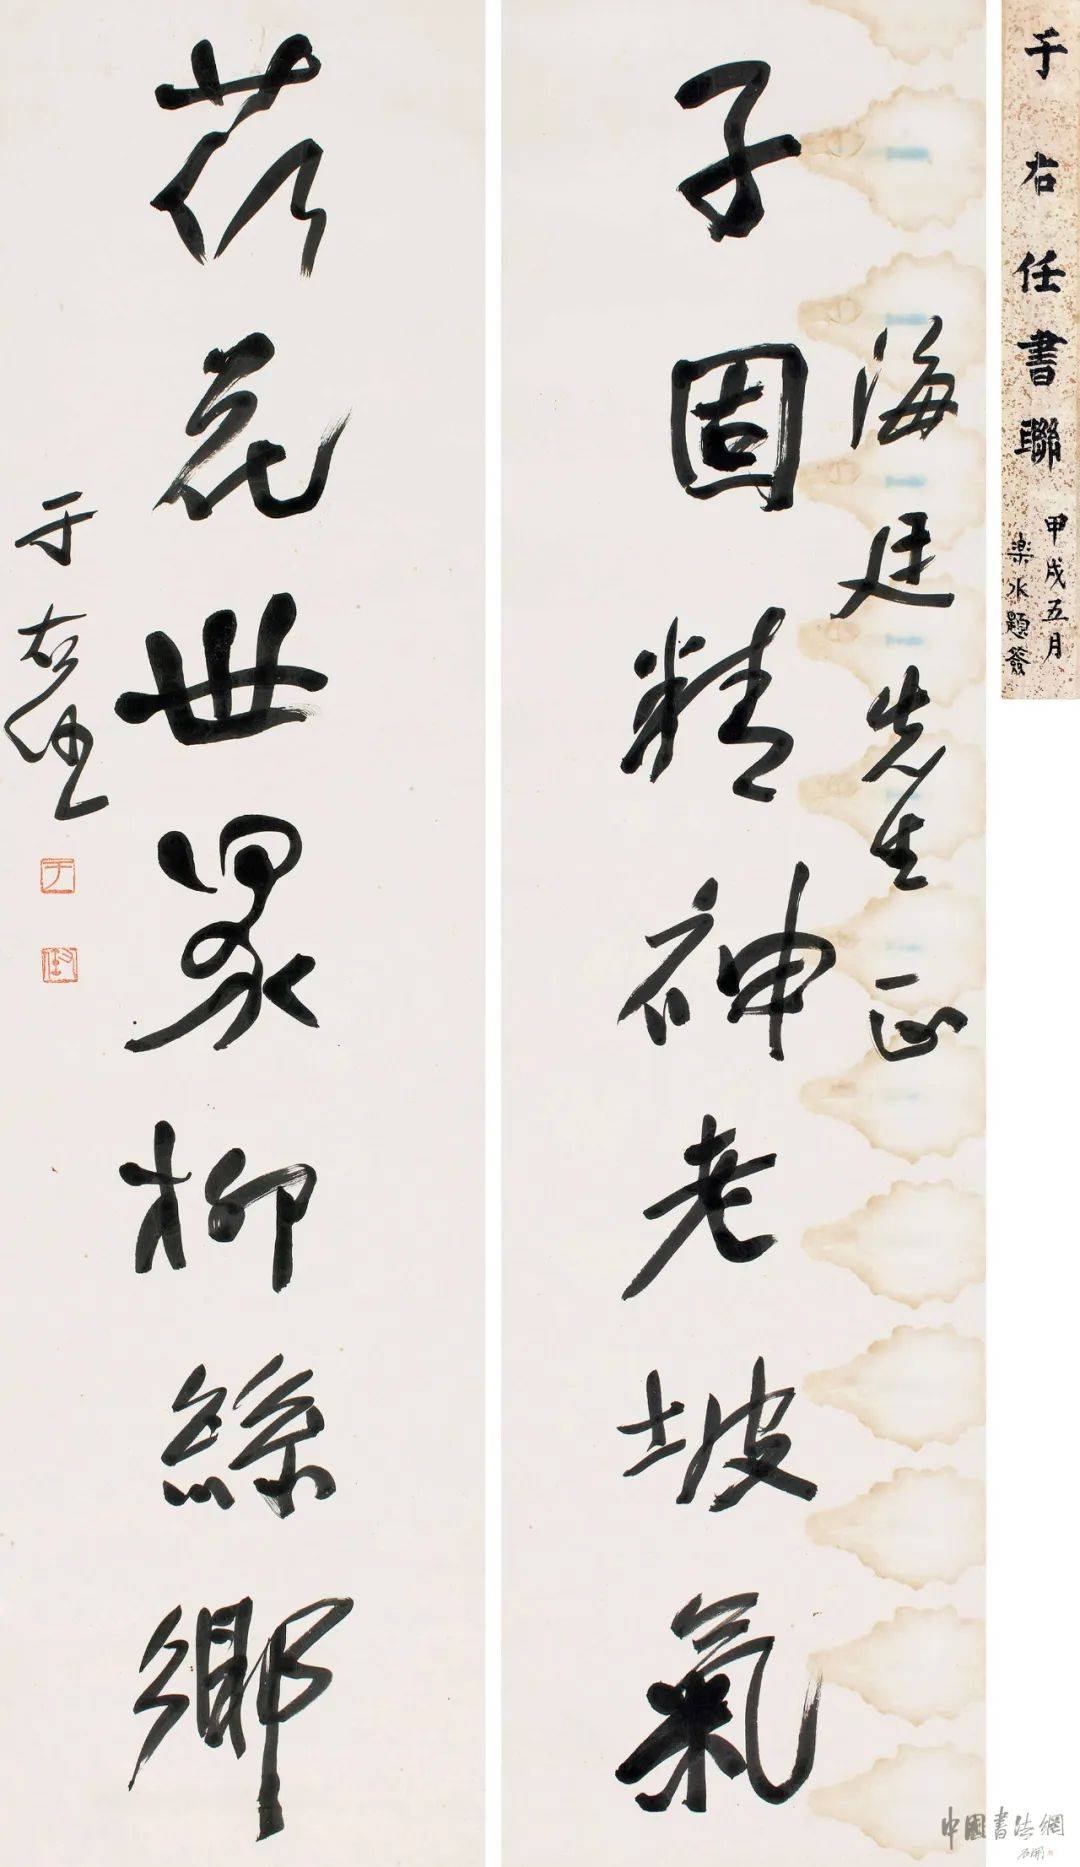 于右任書聯
甲戌五月
楽水題簽
海廷先生正
子固精神老坡氣
荷花世界柳絲鄉
于右任
于
中國書法網